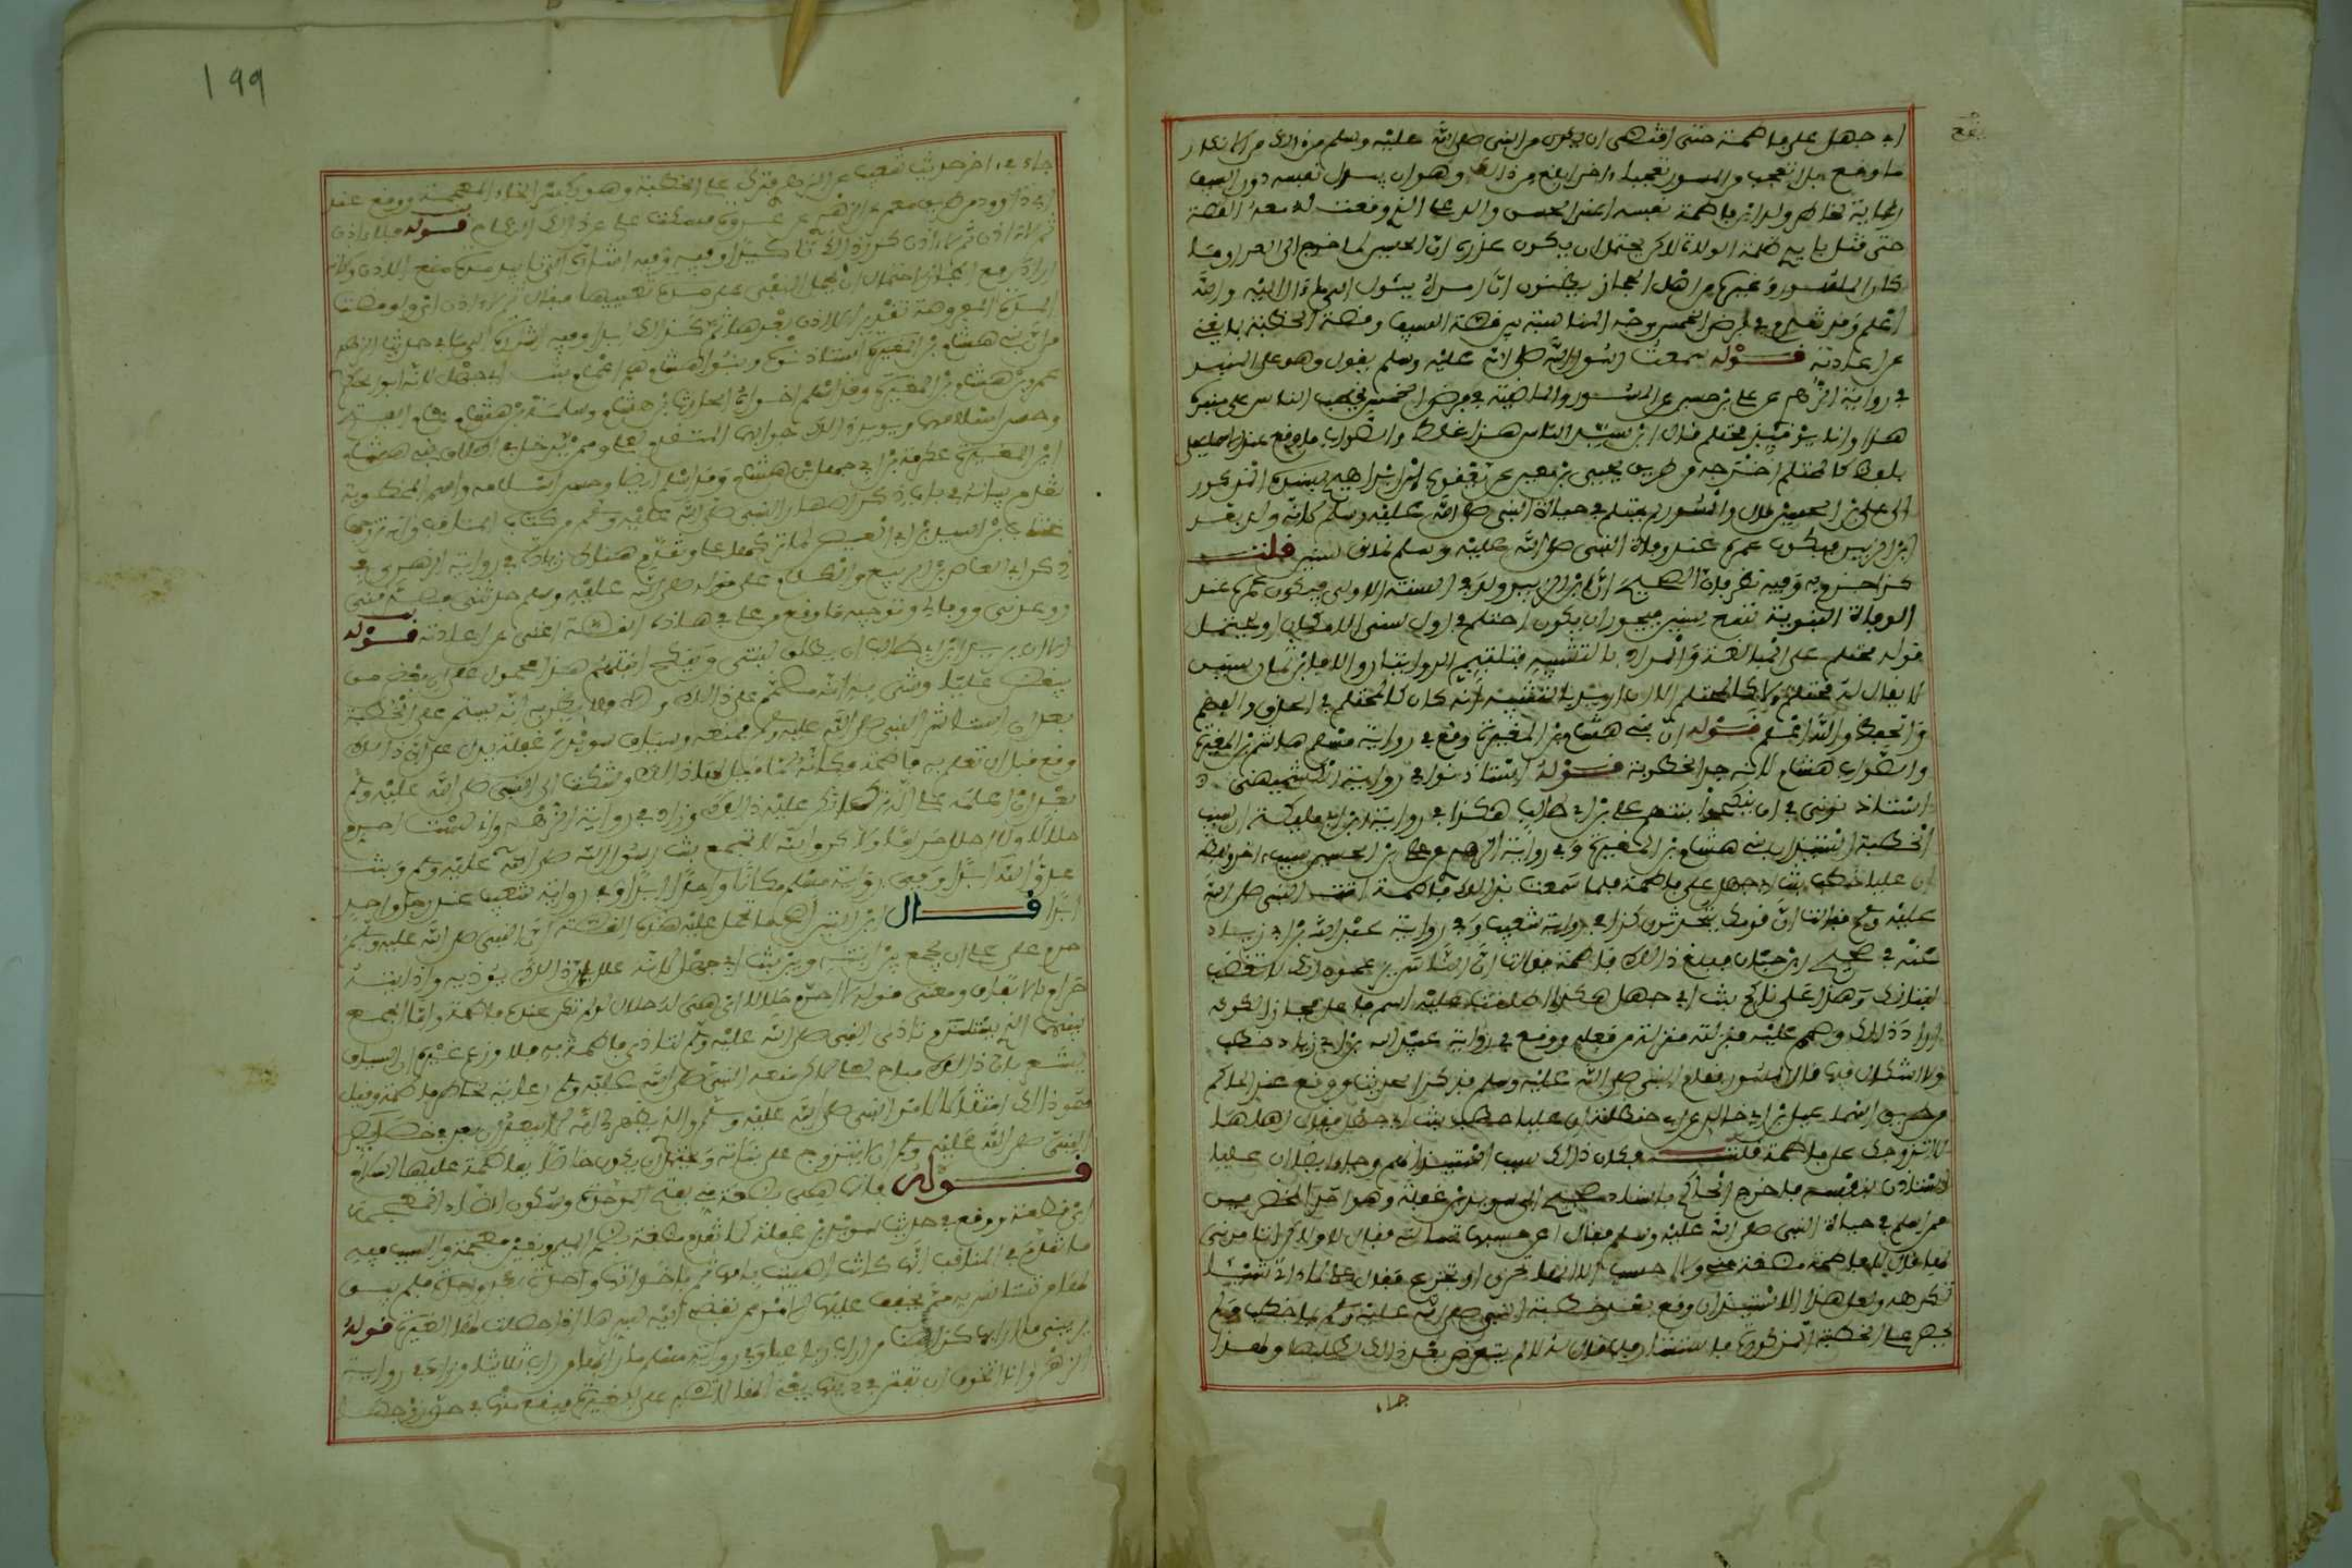 ابي جهل على فاطمة حتى اقتضى ان يكون من النبي صلى الله عليه وسلم في ذلك من الانكار
ما وقع بل اتعجب من المسور تعجبا اخر ابلغ من ذلك وهو ان يبذل نفسه دون السيف
رعاية لخاطر ولد ابن فاطمة نفسه اعني الحسين والد علي الذي وقعت له معه القصة
حتى قتل بايدي ظلمة الولاة لكن يحتمل ان يكون عذره ان الحسين لما خرج الى العراق ما
كان المسور وغيره من اهل الحجاز يظنون ان امره يئول الى ما آل اليه والله
اعلم وقد تقدم في فرض الخمس وجه المناسبة بين قصة السيف وقصة الخطبة بما يغني
عن اعادته قوله سمعت رسول الله صلى الله عليه وسلم يقول وهو على المنبر
في رواية الزهري عن علي بن حسين عن المسور الماضية في فرض الخمس يخطب الناس على منبره
هذا وانا يومئذ محتلم قال ابن سيد الناس هذا غلط والصواب ما وقع عند الاسماعيلي
بلفظ كالمحتلم اخرجه من طريق يحيى بن معين عن يعقوب بن ابراهيم بسنده المذكور
الى علي بن الحسين قال والمسور لم يحتلم في حياة النبي صلى الله عليه وسلم لانه ولد بعد
ابن الزبير فيكون عمره عند وفاة النبي صلى الله عليه وسلم ثمان سنين قلت
كذا جزم به وفيه نظر فان الصحيح ان ابن الزبير ولد في السنة الاولى فيكون عمره عند
الوفاة النبوية تسع سنين فيجوز ان يكون احتلم في اول سني الامكان او يحمل
قوله محتلم على المبالغة والمراد بالتشبيه فتلتئم الروايتان والا فابن ثمان سنين
لا يقال له محتلم ولا كالمحتلم الا ان اريد بالتشبيه انه كان كالمحتلم في الحذق والفهم
والحفظ والله اعلم قوله ان بني هشام بن المغيرة وقع في رواية مسلم هاشم بن المغيرة
والصواب هشام لانه جد المخطوبة قوله استاذنوا في رواية الكشميهني
استاذنوني في ان ينكحوا ابنتهم علي بن ابي طالب هكذا في رواية ابن ابي مليكة ان سبب
الخطبة استيذان بني هشام بن المغيرة وفي رواية الزهري عن علي بن الحسين بسبب اخر ولفظه
ان عليا خطب بنت ابي جهل على فاطمة فلما سمعت بذلك فاطمة اتت النبي صلى الله
عليه وسلم فقالت ان قومك يتحدثون كذا في رواية شعيب وفي رواية عبد الله بن ابي زياد
عنه في صحيح ابن حبان فبلغ ذلك فاطمة فقالت ان الناس يزعمون انك لا تغضب
لبناتك وهذا علي ناكح بنت ابي جهل هكذا اطلقت عليه اسم فاعل مجازا لكونه
اراد ذلك وصمم عليه فنزلته منزلة من فعله ووقع في رواية عبيد الله بن ابي زياد خطب
ولا اشكال فيها قال المسور فقام النبي صلى الله عليه وسلم فذكر الحديث ووقع عند الحاكم
من طريق اسماعيل بن ابي خالد عن ابي حنظلة ان عليا خطب بنت ابي جهل فقال اهلها
لا نزوجك على فاطمة قلت فكان ذلك سبب استيذانهم وجاء ايضا ان عليا
استاذن بنفسه فاخرج الحاكم باسناد صحيح الى سويد بن غفلة وهو احد المخضرمين
ممن اسلم في حياة النبي صلى الله عليه وسلم فقال اعن حسبها تسالني فقال لا ولكن اتامرني
بها قال لا فاطمة مضغة مني ولا احسب الا انها تحزن او تجزع فقال علي لا اتي شيئا
تكرهه ولعل هذا الاستيذان وقع بعد خطبة النبي صلى الله عليه وسلم بما خطب ولم
يحضر علي الخطبة المذكورة فاستشار فلما قال له لا لم يتعرض بعد ذلك لطلبها ولهذا
جاء
199
جاء في اخر حديث شعيب عن الزهري فترك علي الخطبة وهو بكسر الخاء المعجمة ووقع عند
ابي داوود من طريق معمر عن الزهري عن عروة فسكت علي عن ذلك النكاح قوله فلا اذن
ثم لا اذن ثم لا اذن كرر ذلك تاكيدا وفيه اشارة الى تابيد مدة منع الاذن وكانه
اراد رفع المجاز لاحتمال ان يحمل النفي على مدة بعينها فقال ثم لا اذن اي ولو مضت
المدة المفروضة تقديرا لا اذن بعدها ثم كذلك ابدا وفيه اشارة الى ما في حديث الزهري
من ان بني هشام بن المغيرة استاذنوه وبنو هشام هم اعمام بنت ابي جهل لانه ابو الحكم
عمرو بن هشام بن المغيرة وقد اسلم اخواه الحارث بن هشام وسلمة بن هشام عام الفتح
وحسن اسلامهما ويؤيد ذلك جوابهما المتقدم لعلي وممن يدخل في اطلاق بني هشام
ابن المغيرة عكرمة بن ابي جهل بن هشام وقد اسلم ايضا وحسن اسلامه واسم المخطوبة
تقدم بيانه في باب ذكر اصهار النبي صلى الله عليه وسلم من كتاب المناقب وانه تزوجها
عتاب بن اسيد بن ابي العيص لما تركها علي وتقدم هناك زيادة في رواية الزهري في
ذكر ابي العاص بن الربيع والكلام على قوله صلى الله عليه وسلم حدثني فصدقني
ووعدني ووفى لي وتوجيه ما وقع من علي في هذه القصة اغنى عن اعادته قوله
الا ان يريد ابن ابي طالب ان يطلق ابنتي وينكح ابنتهم هذا محمول على ان بعض من
يبغض عليا وشى به انه مصمم على ذلك والا فلا يظن به انه يستمر على الخطبة
بعد ان استشار النبي صلى الله عليه وسلم فمنعه وسياق سويد بن غفلة يدل على ان ذلك
وقع قبل ان تعلم به فاطمة فكانه لما قيل لها ذلك وشكت الى النبي صلى الله عليه وسلم
بعد ان اعلمه علي انه ترك انكر عليه ذلك وزاد في رواية الزهري واني لست احرم
حلالا ولا احلل حراما ولاكن والله لا تجتمع بنت رسول الله صلى الله عليه وسلم وبنت
عدو الله ابدا وفي رواية مسلم مكانا واحدا ابدا وفي رواية شعيب عند رجل واحد
ابدا قال ابن التين اصح ما تحمل عليه هذه القصة ان النبي صلى الله عليه وسلم
حرم على علي ان يجمع بين ابنته وبين بنت ابي جهل لانه علل بان ذلك يؤذيه واذايته
حرام بالاتفاق ومعنى قوله لا احرم حلالا اي هي له حلال لو لم تكن عنده فاطمة واما الجمع
بينهما الذي يستلزم تاذي النبي صلى الله عليه وسلم لتاذي فاطمة به فلا وزعم غيره ان السياق
يشعر بان ذلك مباح لعلي لكن منعه النبي صلى الله عليه وسلم رعاية لخاطر فاطمة وقبل
هو ذلك امتثالا لامر النبي صلى الله عليه وسلم والذي يظهر لي انه لا يبعد ان يعد في خصايص
النبي صلى الله عليه وسلم ان لا يتزوج على بناته ويحتمل ان يكون خاصا بفاطمة عليها السلام
قوله فانما هي بضعة مني بفتح الموحدة وسكون الضاد المعجمة
اي قطعة ووقع في حديث سويد بن غفلة كما تقدم مضغة بضم الميم وبغين معجمة والسبب فيه
ما تقدم في المناقب انها كانت اصيبت بامها ثم باخواتها واحدة بعد واحدة فلم يبق
لها من تستانس به ممن يخفف عليها الامر ممن تفضي اليه بسرها اذا حصلت لها الغيرة قوله
يريبني ما ارابها كذا هنا من اراب رباعيا وفي رواية مسلم ما رابها من راب ثلاثيا وزاد في رواية
الزهري وانا اتخوف ان تفتن في دينها يعني انها لا تصبر على الغيرة فيقع منها في حق زوجها